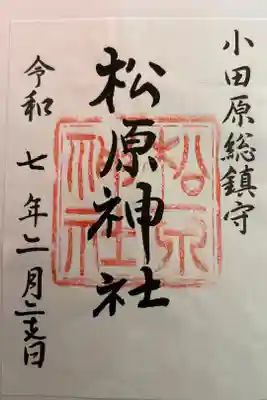 小田原総鎮守
松原神社
松原神社
令和七年二月二十五日